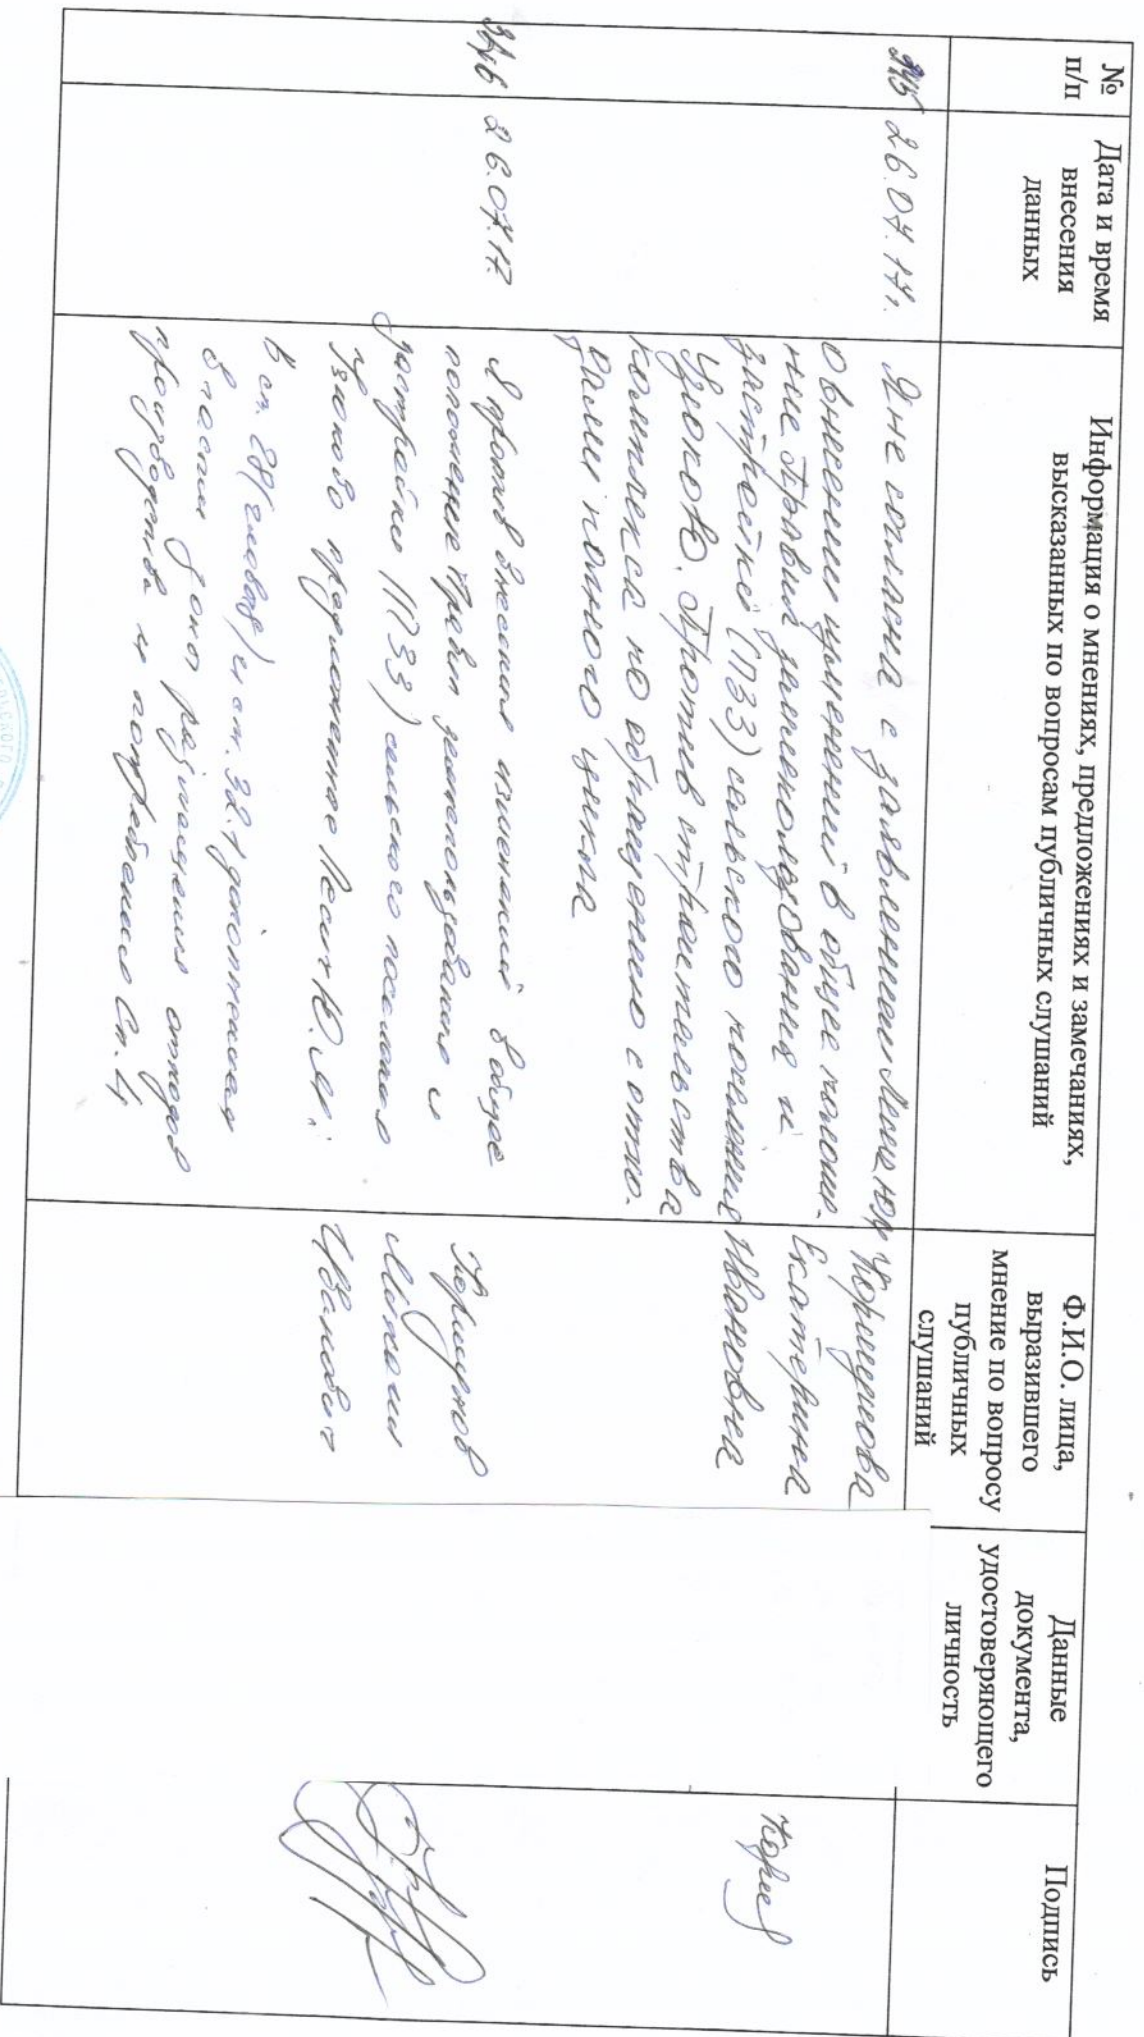 №
п/п
Дата и время
внесения
данных
Информация о мнениях, предложениях и замечаниях,
высказанных по вопросам публичных слушаний
Ф.И.О. лица,
выразившего
мнение по вопросу
публичных
слушаний
Данные
документа,
удостоверяющего
личность
Подпись
26.07.17г.
Я не согласна с заявлением
О внесении изменений в общее положе-
ние Правил землепользования и
застройке (ПЗЗ) сельского поселения
Узюково. Против строительства
комплекса по обращению с отхо-
дами полного цикла
Екатерина
Ивановна
26.07.17.
Я против внесения изменений в общее
положение Правил землепользования и
застройке ПЗЗ) сельского поселения
Узюково предложенное
В ст. 28 и ст. 32.1 дополнения
в части зоны размещения отходов
производства и потребления Сп. 4
Коршунов
Михаил
Иванович